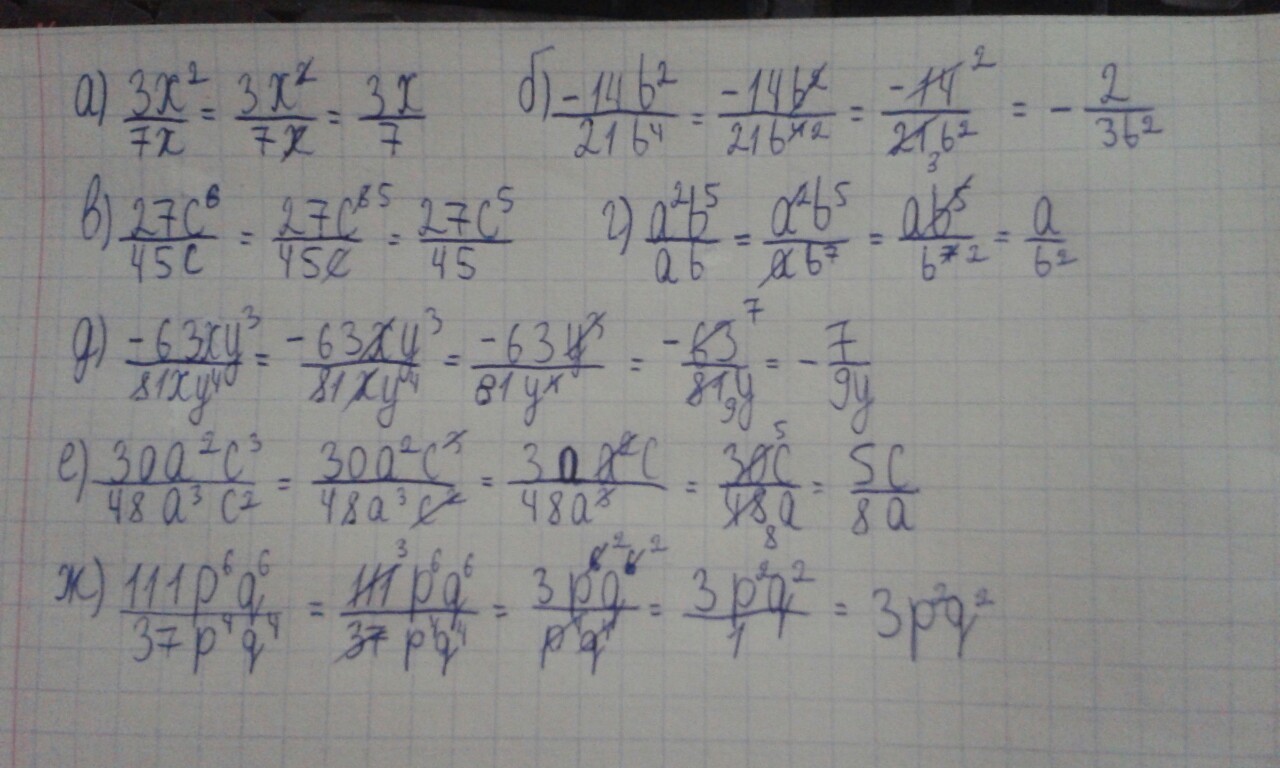 а) 3x²/7x = 3x²/7x = 3x/7 б) -14b²/21b⁴ = -14b²/21b⁴ ² = -14 ²/21 ₃b² = - 2/3b²
в) 27c⁶/45c = 27c⁶ ⁵/45c = 27c⁵/45 г) a²b⁵/ab = a²b⁵/ab⁷ = ab⁵/b⁷ ² = a/b²
д) -63xy³/81xy⁴ = -63xy³/81xy⁴ = -63y³/81y⁴ = -63 ⁷/81 ₉y = - 7/9y
е) 30a²c³/48a³c² = 30a²c³/48a³c² = 30a²c/48a³ = 30 ⁵c/48 ₈a = 5c/8a
ж) 111p⁶q⁶/37p⁴q⁴ = 111 ³p⁶q⁶/37p⁴q⁴ = 3p⁶ ²q⁶ ²/p⁴q⁴ = 3p²q²/1 = 3p²q²